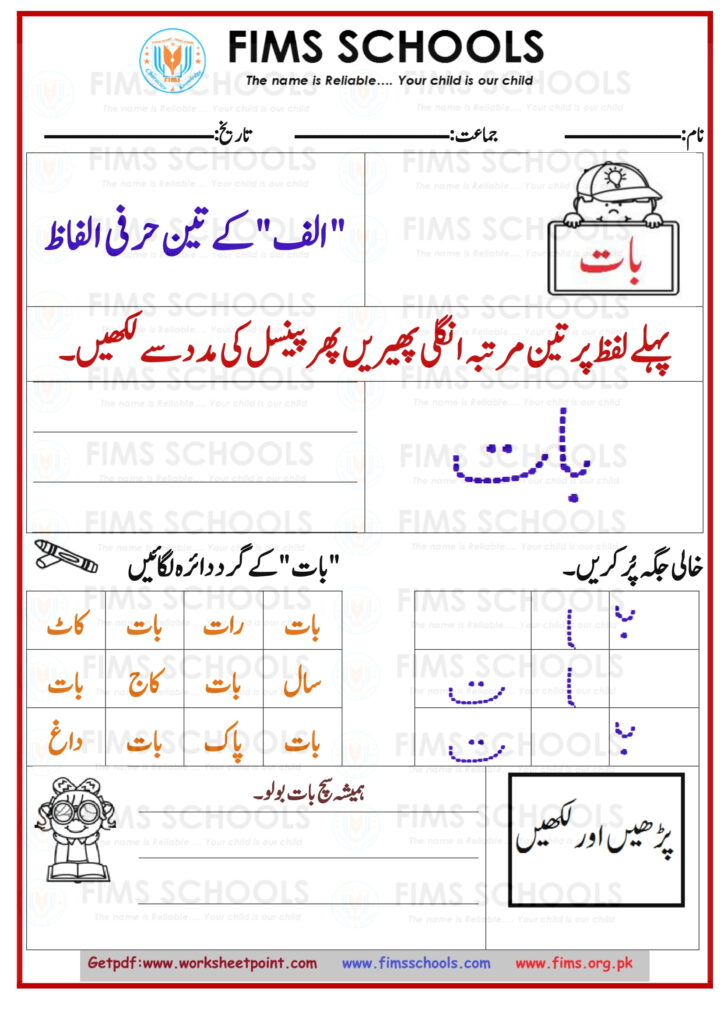 FIMS SCHOOLS
The name is Reliable.... Your child is our child
نام: جماعت: تاریخ:
بات
"الف" کے تین حرفی الفاظ
پہلے لفظ پر تین مرتبہ انگلی پھیریں پھر پینسل کی مدد سے لکھیں۔
بات
خالی جگہ پُر کریں۔
"بات" کے گرد دائرہ لگائیں
بـ ا
ا ت
بـ ت
بات رات بات کاٹ
سال بات کاج بات
بات پاک بات داغ
پڑھیں اور لکھیں
ہمیشہ سچ بات بولو۔
Getpdf:www.worksheetpoint.com www.fimsschools.com www.fims.org.pk